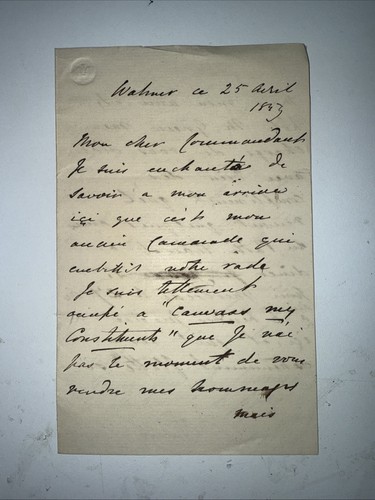 Walmer ce 25 Avril
18
Mon cher Commandant
Je suis enchanté de
savoir a mon arrivée
içi que c'est mon
ancien Camarade qui
embellit notre rade
Je suis tellement
occupé a "Canvass my
Constituents" que Je n'ai
pas le moment de vous
rendre mes hommages
mais